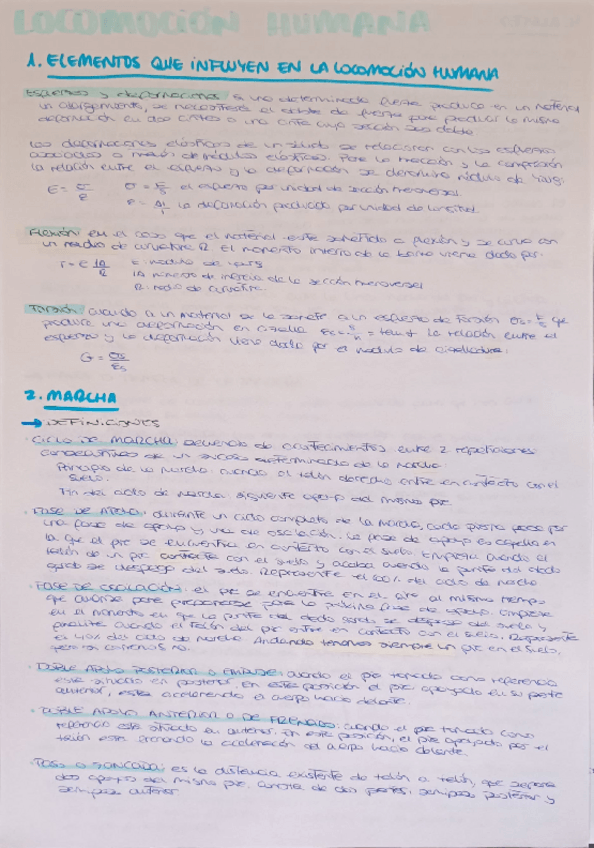 LOCOMOCIÓN HUMANA
1. ELEMENTOS QUE INFLUYEN EN LA LOCOMOCIÓN HUMANA
Esfuerzos y deformaciones: a una determinada fuerza produce en un material
un alargamiento, se necesitará el doble de fuerza para producir la misma
deformación en dos cintas o una cinta cuya sección sea doble
Las deformaciones elásticas de un sólido se relacionan con los esfuerzos
asociados a través de módulos elásticos. Para la tracción y la compresión
la relación entre el esfuerzo y la deformación se denomina módulo de Young.
el esfuerzo por unidad de sección transversal.
la deformación producida por unidad de longitud.
Flexión: en el caso que el material esté sometido a flexión y se curve con
un radio de curvatura R. El momento interno de la barra viene dado por:
E = módulo de Young
IA momento de inercia de la sección transversal
R: radio de curvatura.
Torsión: cuando a un material se le somete a un esfuerzo de torsión que
produce una deformación en cizalla La relación entre el
esfuerzo y la deformación viene dada por el módulo de cizalladura:
2. MARCHA
→ DEFINICIONES
· CICLO DE MARCHA: secuencia de acontecimientos entre 2 repeticiones
consecutivas de un suceso determinado de la marcha.
Principio de la marcha: cuando el talón derecho entre en contacto con el
suelo.
Fin del ciclo de marcha: siguiente apoyo del mismo pie.
· FASE DE APOYO: durante un ciclo completo de la marcha, cada pierna pasa por
una fase de apoyo y una de oscilación. La fase de apoyo es aquella en
la que el pie se encuentra en contacto con el suelo. Empieza cuando el
talón de un pie contacta con el suelo y acaba cuando la punta del dedo
gordo se despega del suelo. Representa el 60% del ciclo de marcha
· FASE DE OSCILACIÓN: el pie se encuentra en el aire al mismo tiempo
que avanza para prepararse para la próxima fase de apoyo. Empieza
en el momento en que la punta del dedo gordo se despega del suelo y
finaliza cuando el talón del pie entra en contacto con el suelo. Representa
el 40% del ciclo de marcha. Andando tenemos siempre un pie en el suelo,
pero si corremos no.
· DOBLE APOYO POSTERIOR O EMPUJE: cuando el pie tomado como referencia
está situado en posterior. En esta posición el pie, apoyado en su parte
anterior, está acelerando el cuerpo hacia delante.
· DOBLE APOYO ANTERIOR O DE FRENADO: cuando el pie tomado como
referencia está situado en anterior. En esta posición, el pie apoyado por el
talón está frenando la aceleración del cuerpo hacia delante.
· PASO O ZANCADA: es la distancia existente de talón a talón, que separa
dos apoyos del mismo pie. Consta de dos partes: semipaso posterior y
semipaso anterior